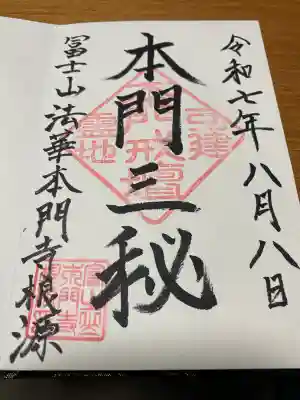 令和七年八月八日
本門三秘
冨士山法華本門寺根源